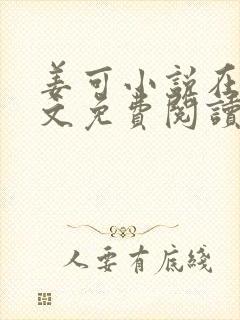 姜可小说在
文免費閱讀
人要有底綫